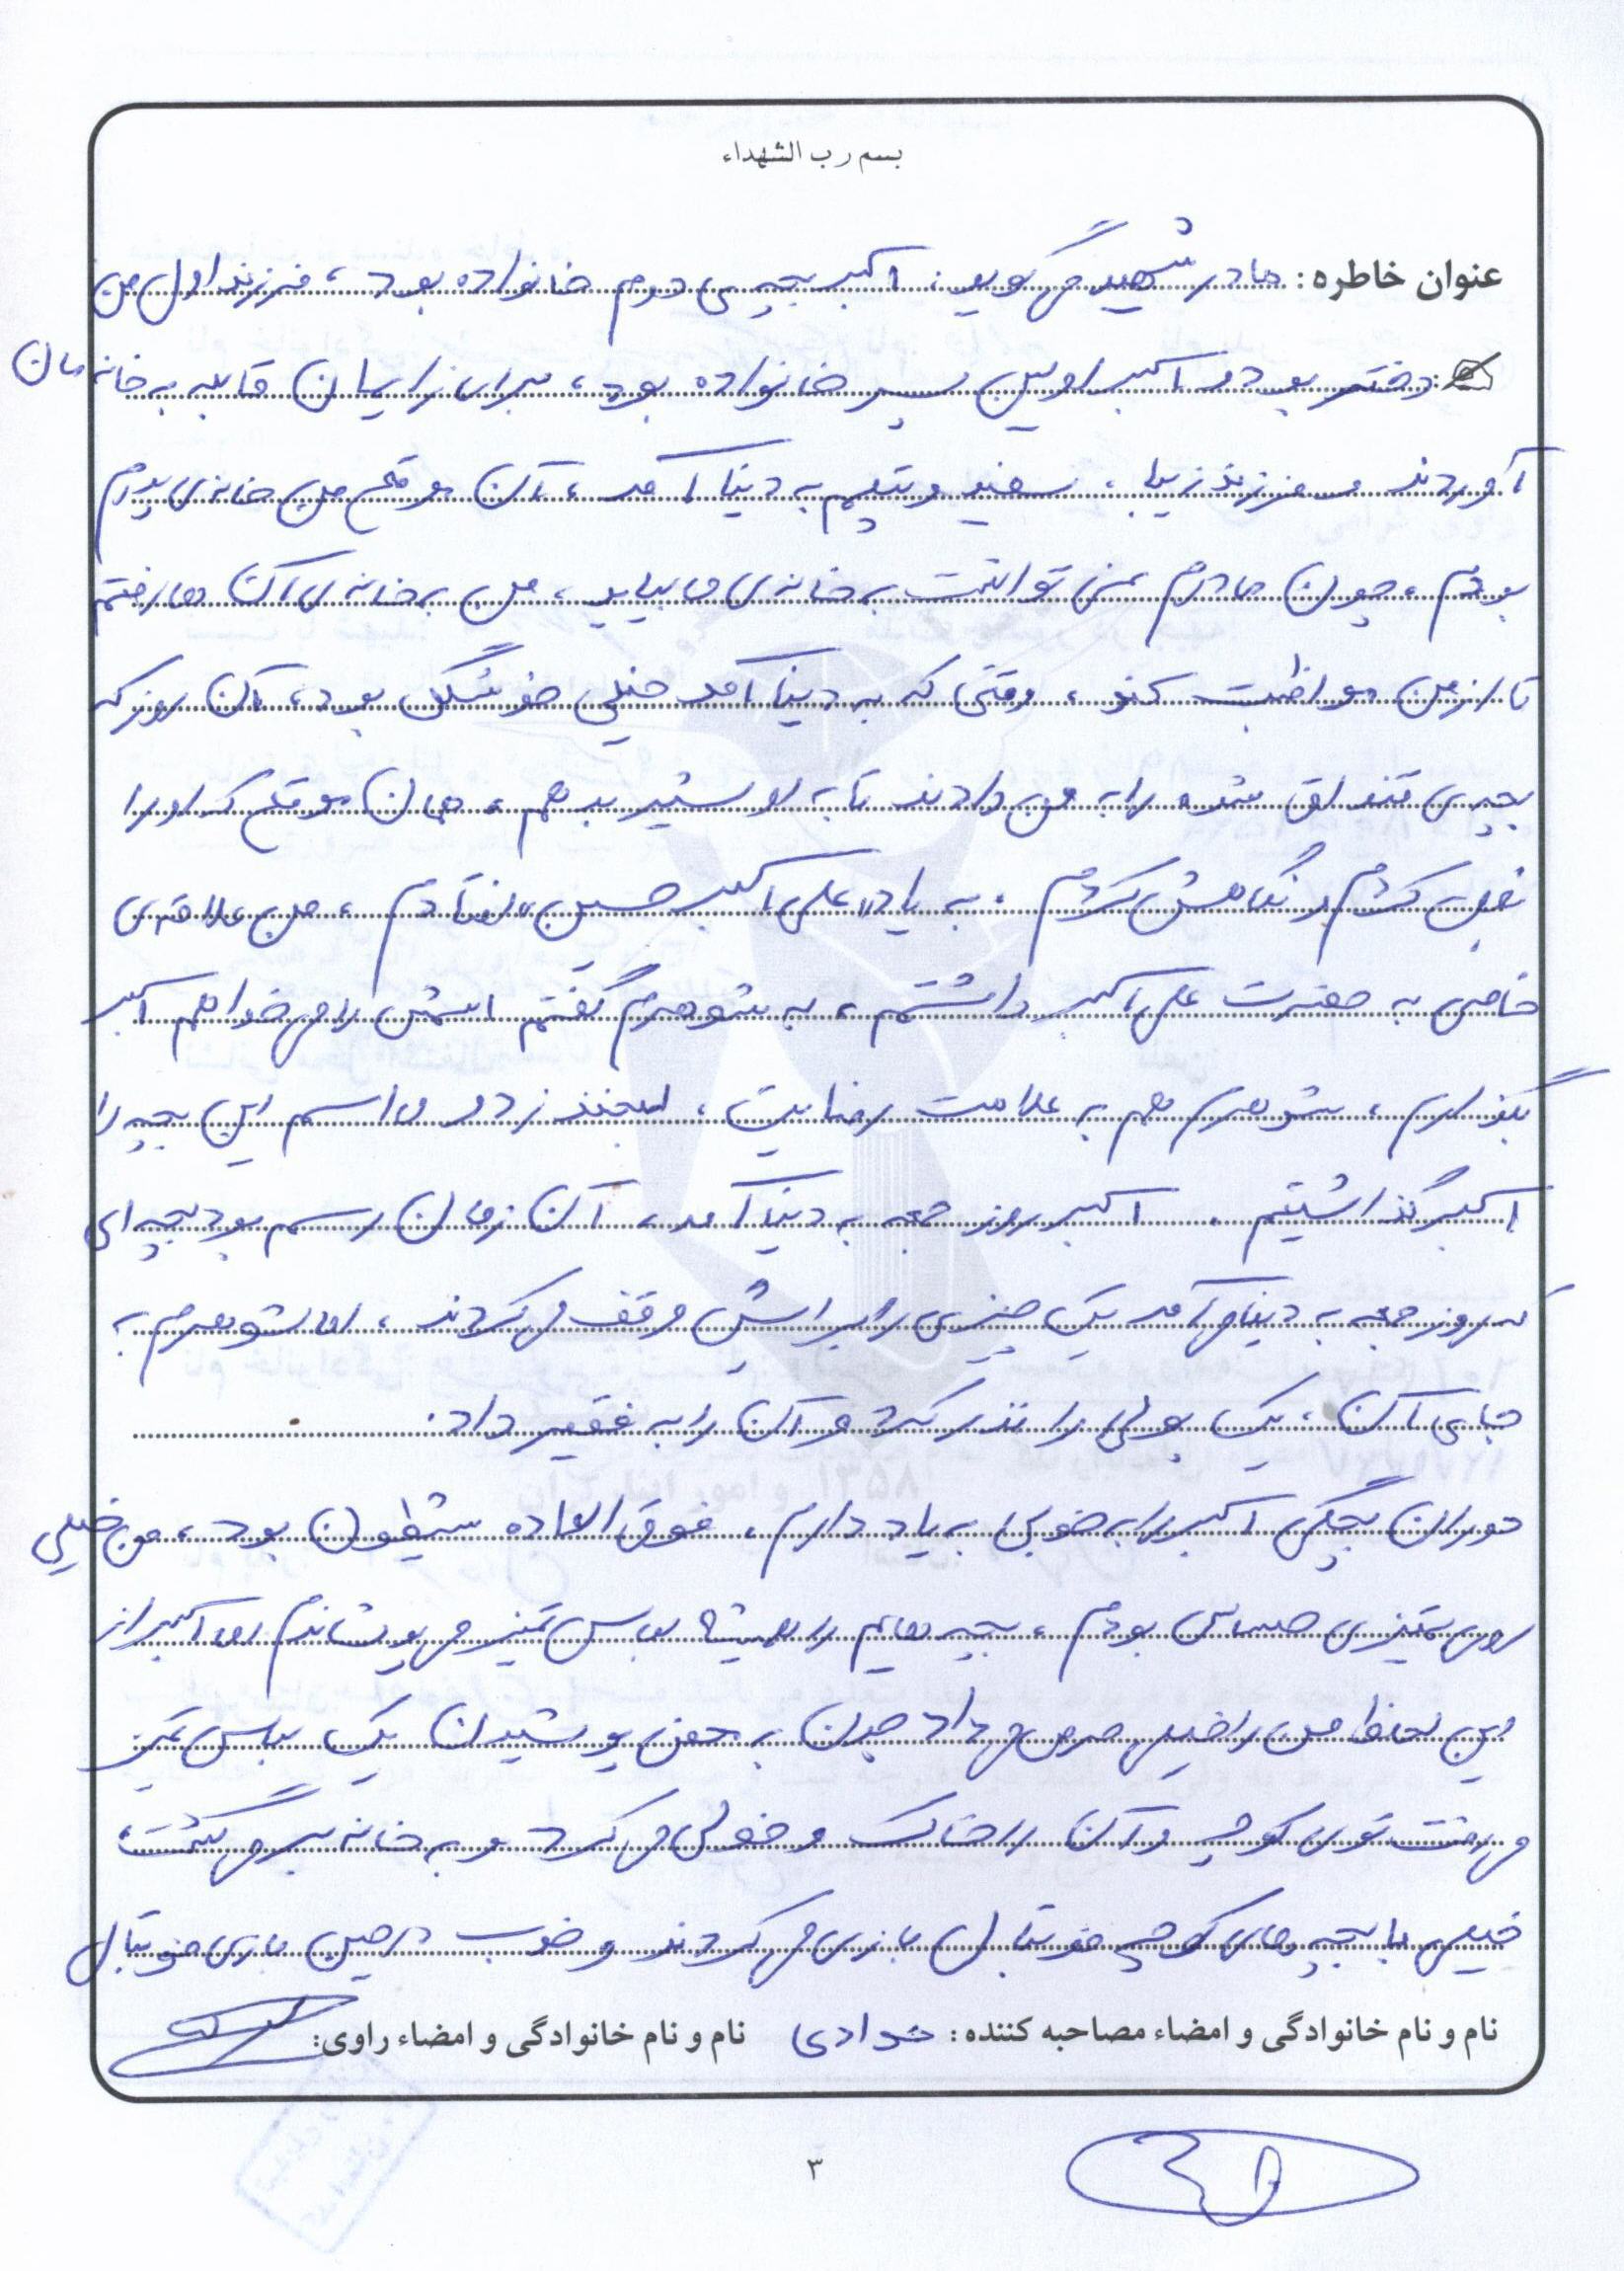 بسم رب الشهداء
عنوان خاطره: مادر شهید می گوید: اکبر بچه ی دوم خانواده بود، فرزند اول من
دختر بود و اکبر اولین پسر خانواده بود، برای زایمان قابله به خانه مان
آوردند و فرزند زیبا، سفید و تپلم به دنیا آمد، آن موقع من خانه ی پدرم
بودم، چون مادرم نمی توانست به خانه ی ما بیاید، من به خانه ی آن ها رفتم
تا از من مواظبت کند، وقتی که به دنیا آمد خیلی خوشگل بود، آن روز که
بچه ی قنداق شده را به من دادند تا به او شیر بدهم، همان موقع که او را
بغل کردم و نگاهش کردم. به یاد «علی اکبر حسین» افتادم، من علاقه ی
خاصی به حضرت علی اکبر داشتم، به شوهرم گفتم اسمش را می خواهم اکبر
بگذارم، شوهرم هم به علامت رضایت، لبخند زد و ما اسم این بچه را
اکبر گذاشتیم. اکبر روز جمعه به دنیا آمد، آن زمان رسم بود بچه ای
که روز جمعه به دنیا می آمد یک چیزی را برایش وقف می کردند، اما شوهرم به
جای آن، یک پولی را نذر کرد و آن را به فقیر داد.
دوران بچگی اکبر را به خوبی به یاد دارم، فوق العاده شیطون بود، من خیلی
روی تمیزی حساس بودم، بچه هایم را همیشه لباس تمیز می پوشاندم اما اکبر از
این لحاظ من را خیلی حرص می داد چون به محض پوشیدن یک لباس تمیز
می رفت توی کوچه و آن را خاک و خولی می کرد و به خانه بر می گشت،
خیلی با بچه های کوچه فوتبال بازی می کردند و خوب در حین بازی فوتبال
نام و نام خانوادگی و امضاء مصاحبه کننده: نام و نام خانوادگی و امضاء راوی:
۳